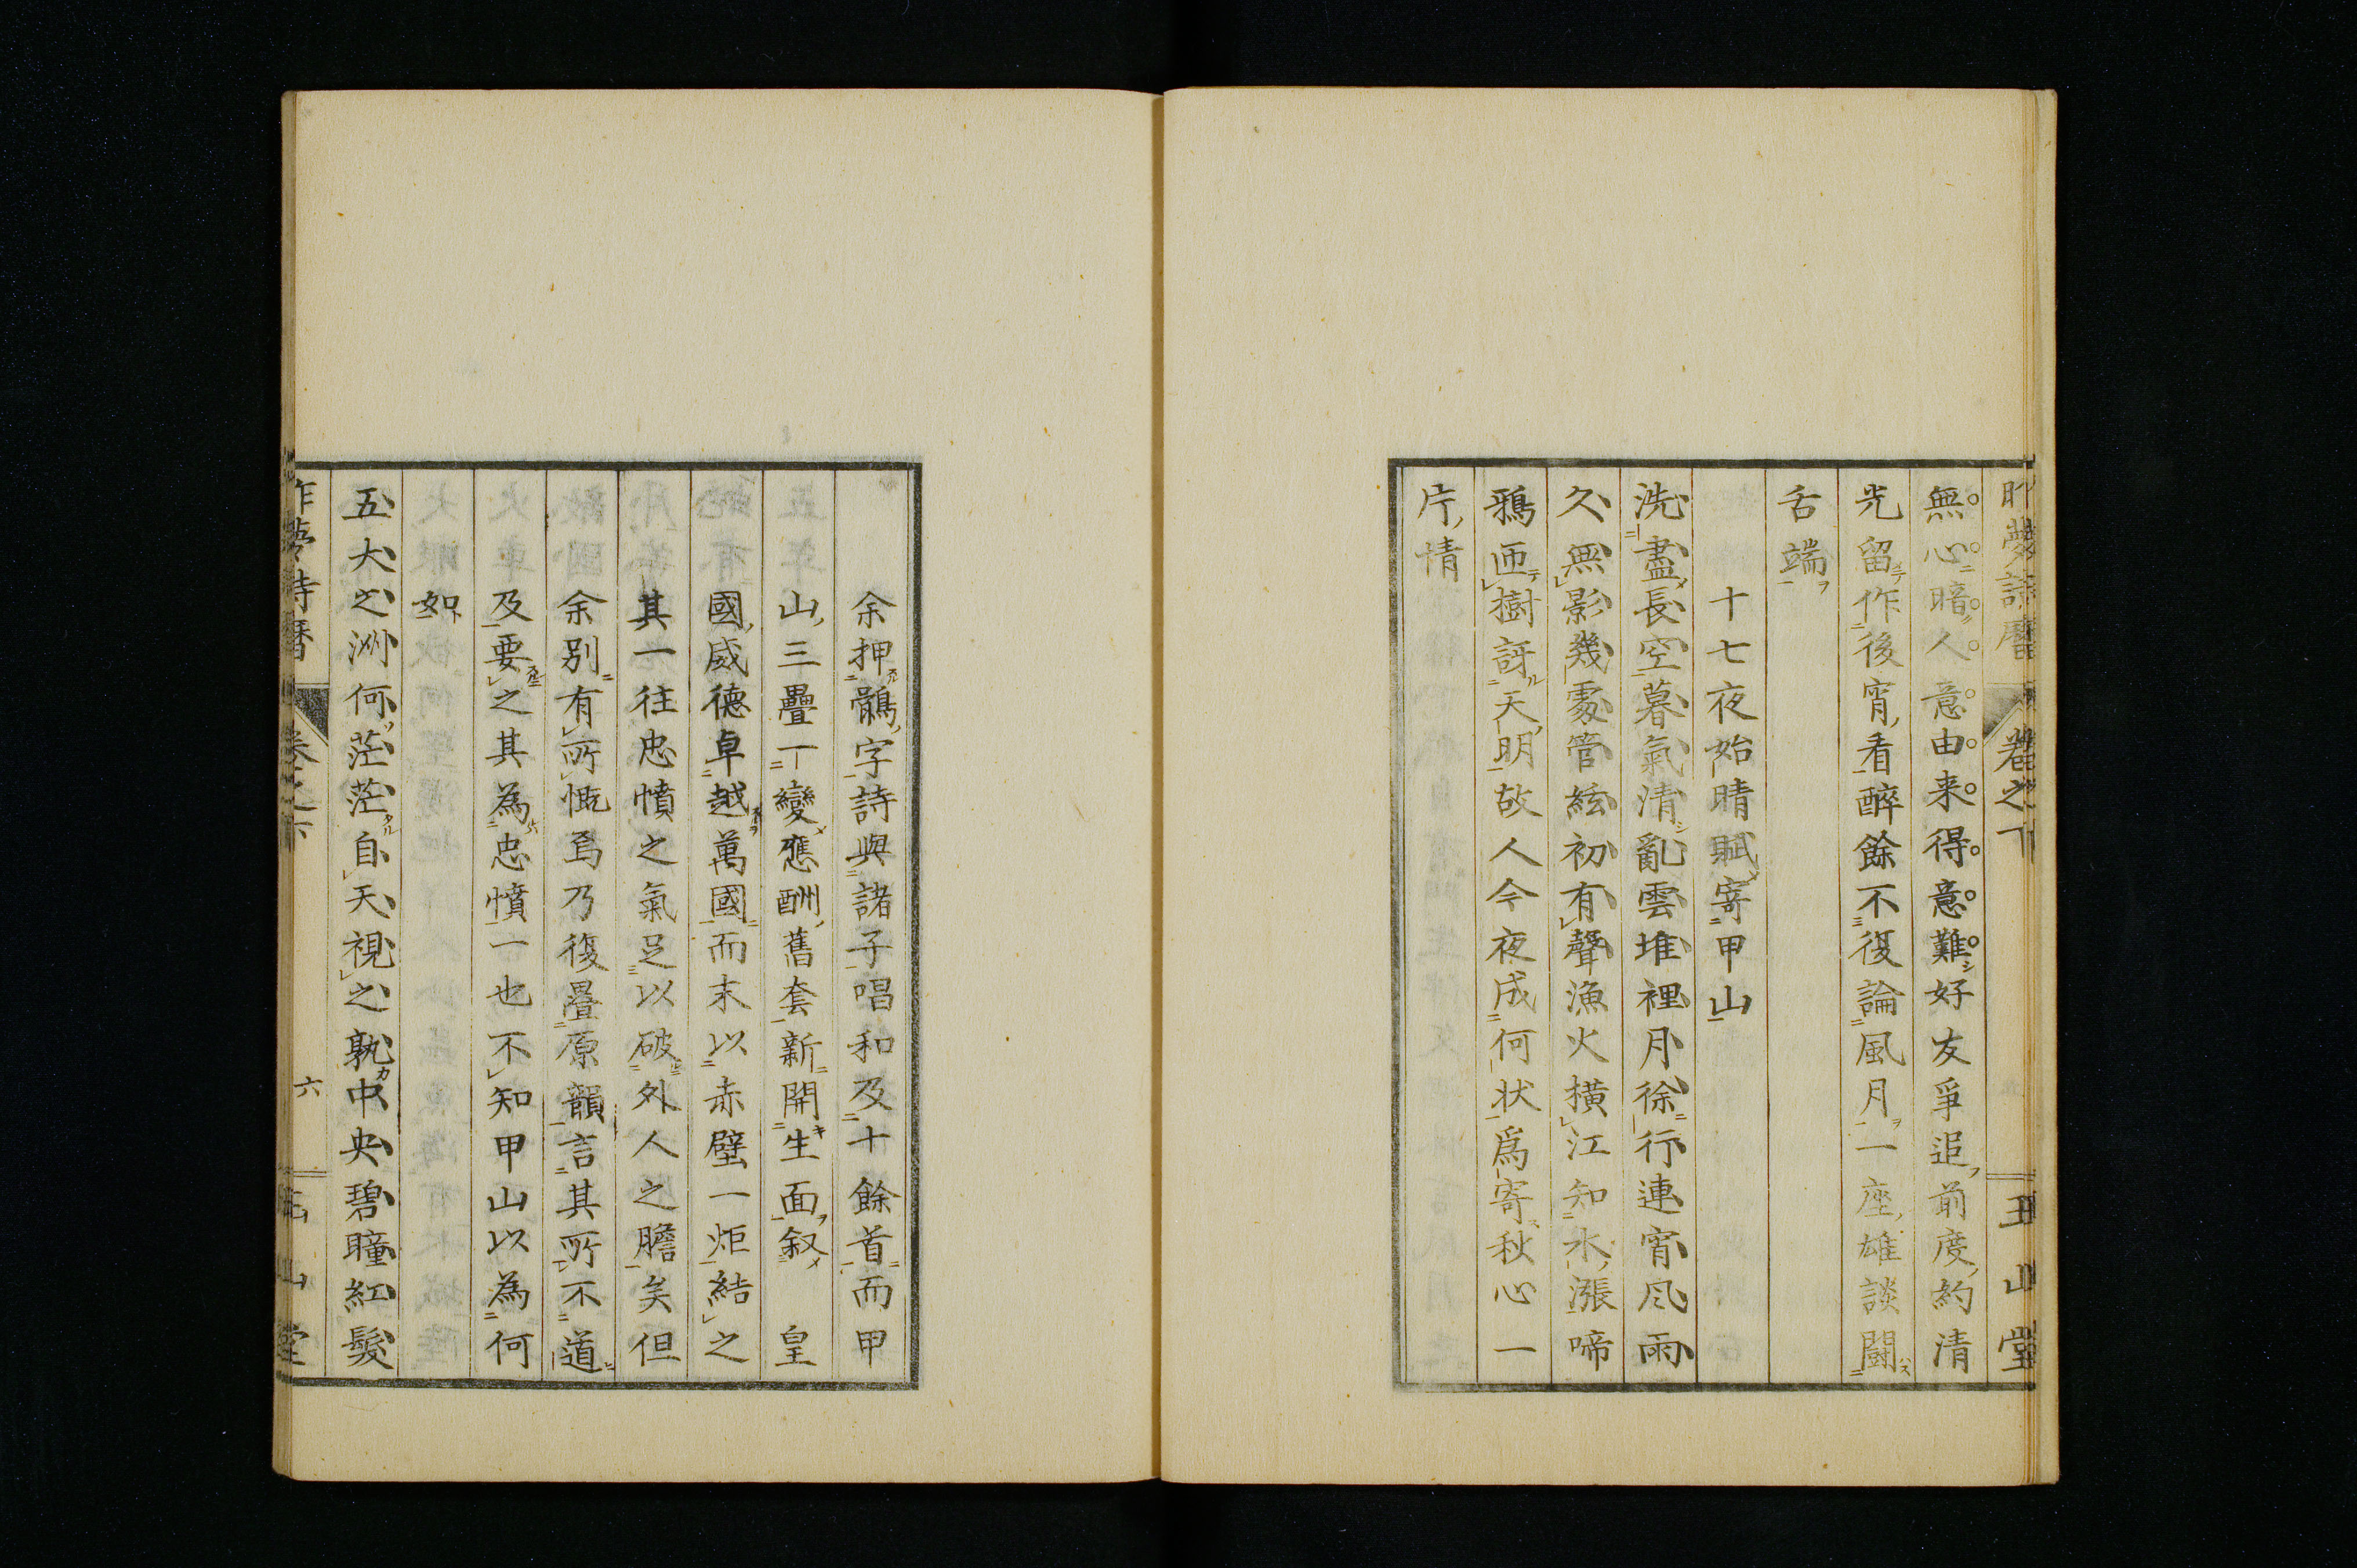 昨夢詩暦　卷之下　玉山堂
無心暗人意由来得意難好友爭追前度約清
光留作後宵看醉餘不復論風月一座雄談鬪
舌端
十七夜始晴賦寄甲山
洗盡長空暮氣清亂雲堆裡月徐行連宵風雨
久無影幾處管絃初有聲漁火横江知水漲啼
鴉匝樹訝天明故人今夜成何状爲寄秋心一
片情
余押鶻字詩與諸子唱和及十餘首而甲
山三疊一變應酬舊套新開生面叙　皇
國威德卓越萬國而末以赤壁一炬結之
其一往忠憤之氣足以破外人之膽矣但
余別有所慨焉乃復疊原韻言其所不道
及要之其為忠憤一也不知甲山以為何
如
五大之洲何茫茫自天視之孰中央碧瞳紅髮
昨夢詩暦　卷之下　六　玉山堂